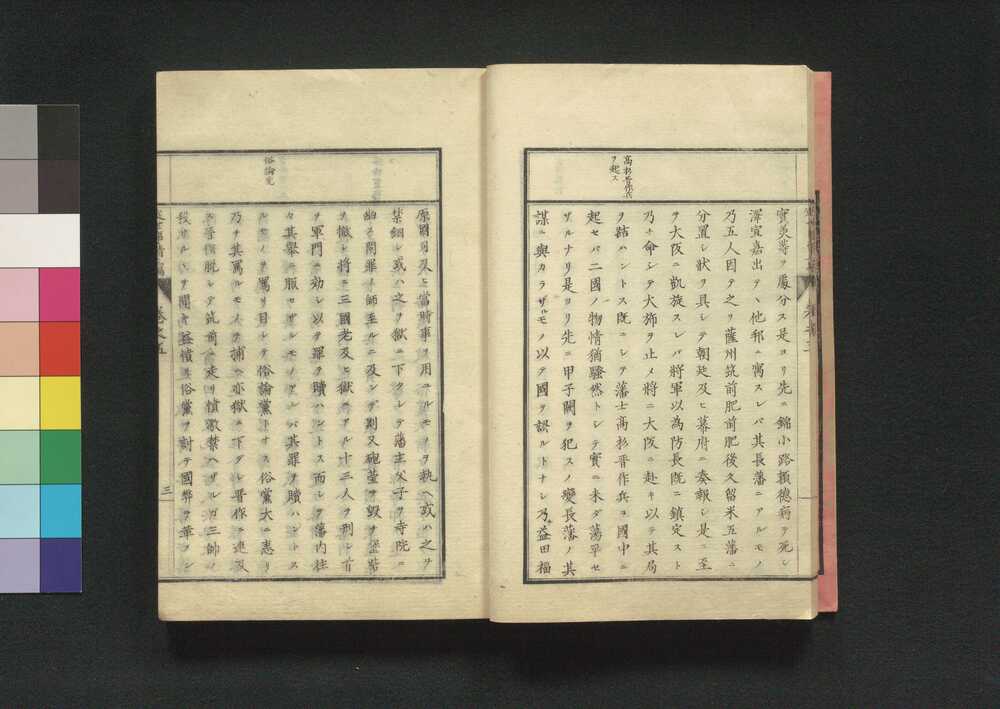 高杉晋作兵
ヲ起ス
実美等ヲ處分ス是ヨリ先ニ錦小路頼德病テ死シ
澤宣嘉出テヽ他邦ニ寓スレバ其長藩ニアルモノ
乃五人因テ之ヲ薩州筑前肥前肥後久留米五藩ニ
分置シ状ヲ具シテ朝廷及ヒ幕府ニ奏報シ是ニ至
ヲ大阪ニ凱旋スレバ將軍以為防長既ニ鎮定スト
乃チ命シテ大斾ヲ止メ將ニ大阪ニ赴キ以テ其局
ヲ結ハントス既ニシテ藩士高杉晋作兵ヲ國中ニ
起セバ二國ノ物情猶騒然トシテ實ニ未ダ蕩平セ
ザルナリ是ヨリ先ニ甲子闕ヲ犯スノ變長藩ノ其
謀ニ與カラザルモノ以テ國ヲ誤ルトナシ乃益田福
俗論党
原國司及ヒ當時事ヲ用ユルモノヲ執ヘ或ハ之ヲ
禁錮シ或ハ之ヲ獄ニ下タシテ藩主父子ヲ寺院ニ
幽シ問罪ノ師至ルニ及ンデ則又砲
ヲ徹シ將ニ三國老及ヒ獄ニアル十二人ヲ刑シ首
ヲ軍門ニ効シ以テ罪ヲ贖ハントス而シテ藩内往
々其舉ニ服セザルモノアレバ其罪ヲ贖ハントス
ルモノヲ罵リ目シテ俗論黨トナス俗黨大ニ恚リ
乃チ其罵ルモノヲ捕ヘ亦獄ニ下ダシ晋作ニ連及
ス晋作脱シテ筑前ニ走リ憤激禁ヘザルガ三帥ノ
ヲ聞キ益憤ミ俗黨ヲ討テ國弊ヲ革ヲン
三